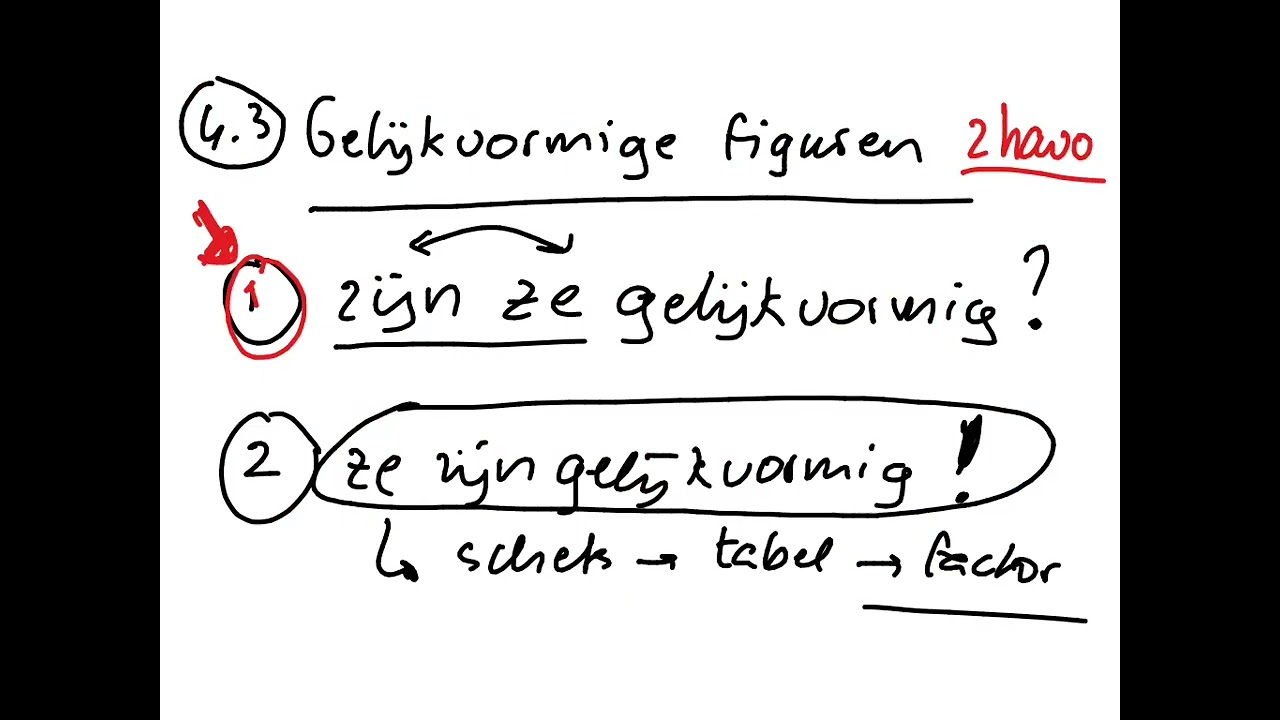 4.3 Gelijkvormige figuren 2havo
1 zijn ze gelijkvormig?
2 ze zijn gelijkvormig!
↳ schets → tabel → factor